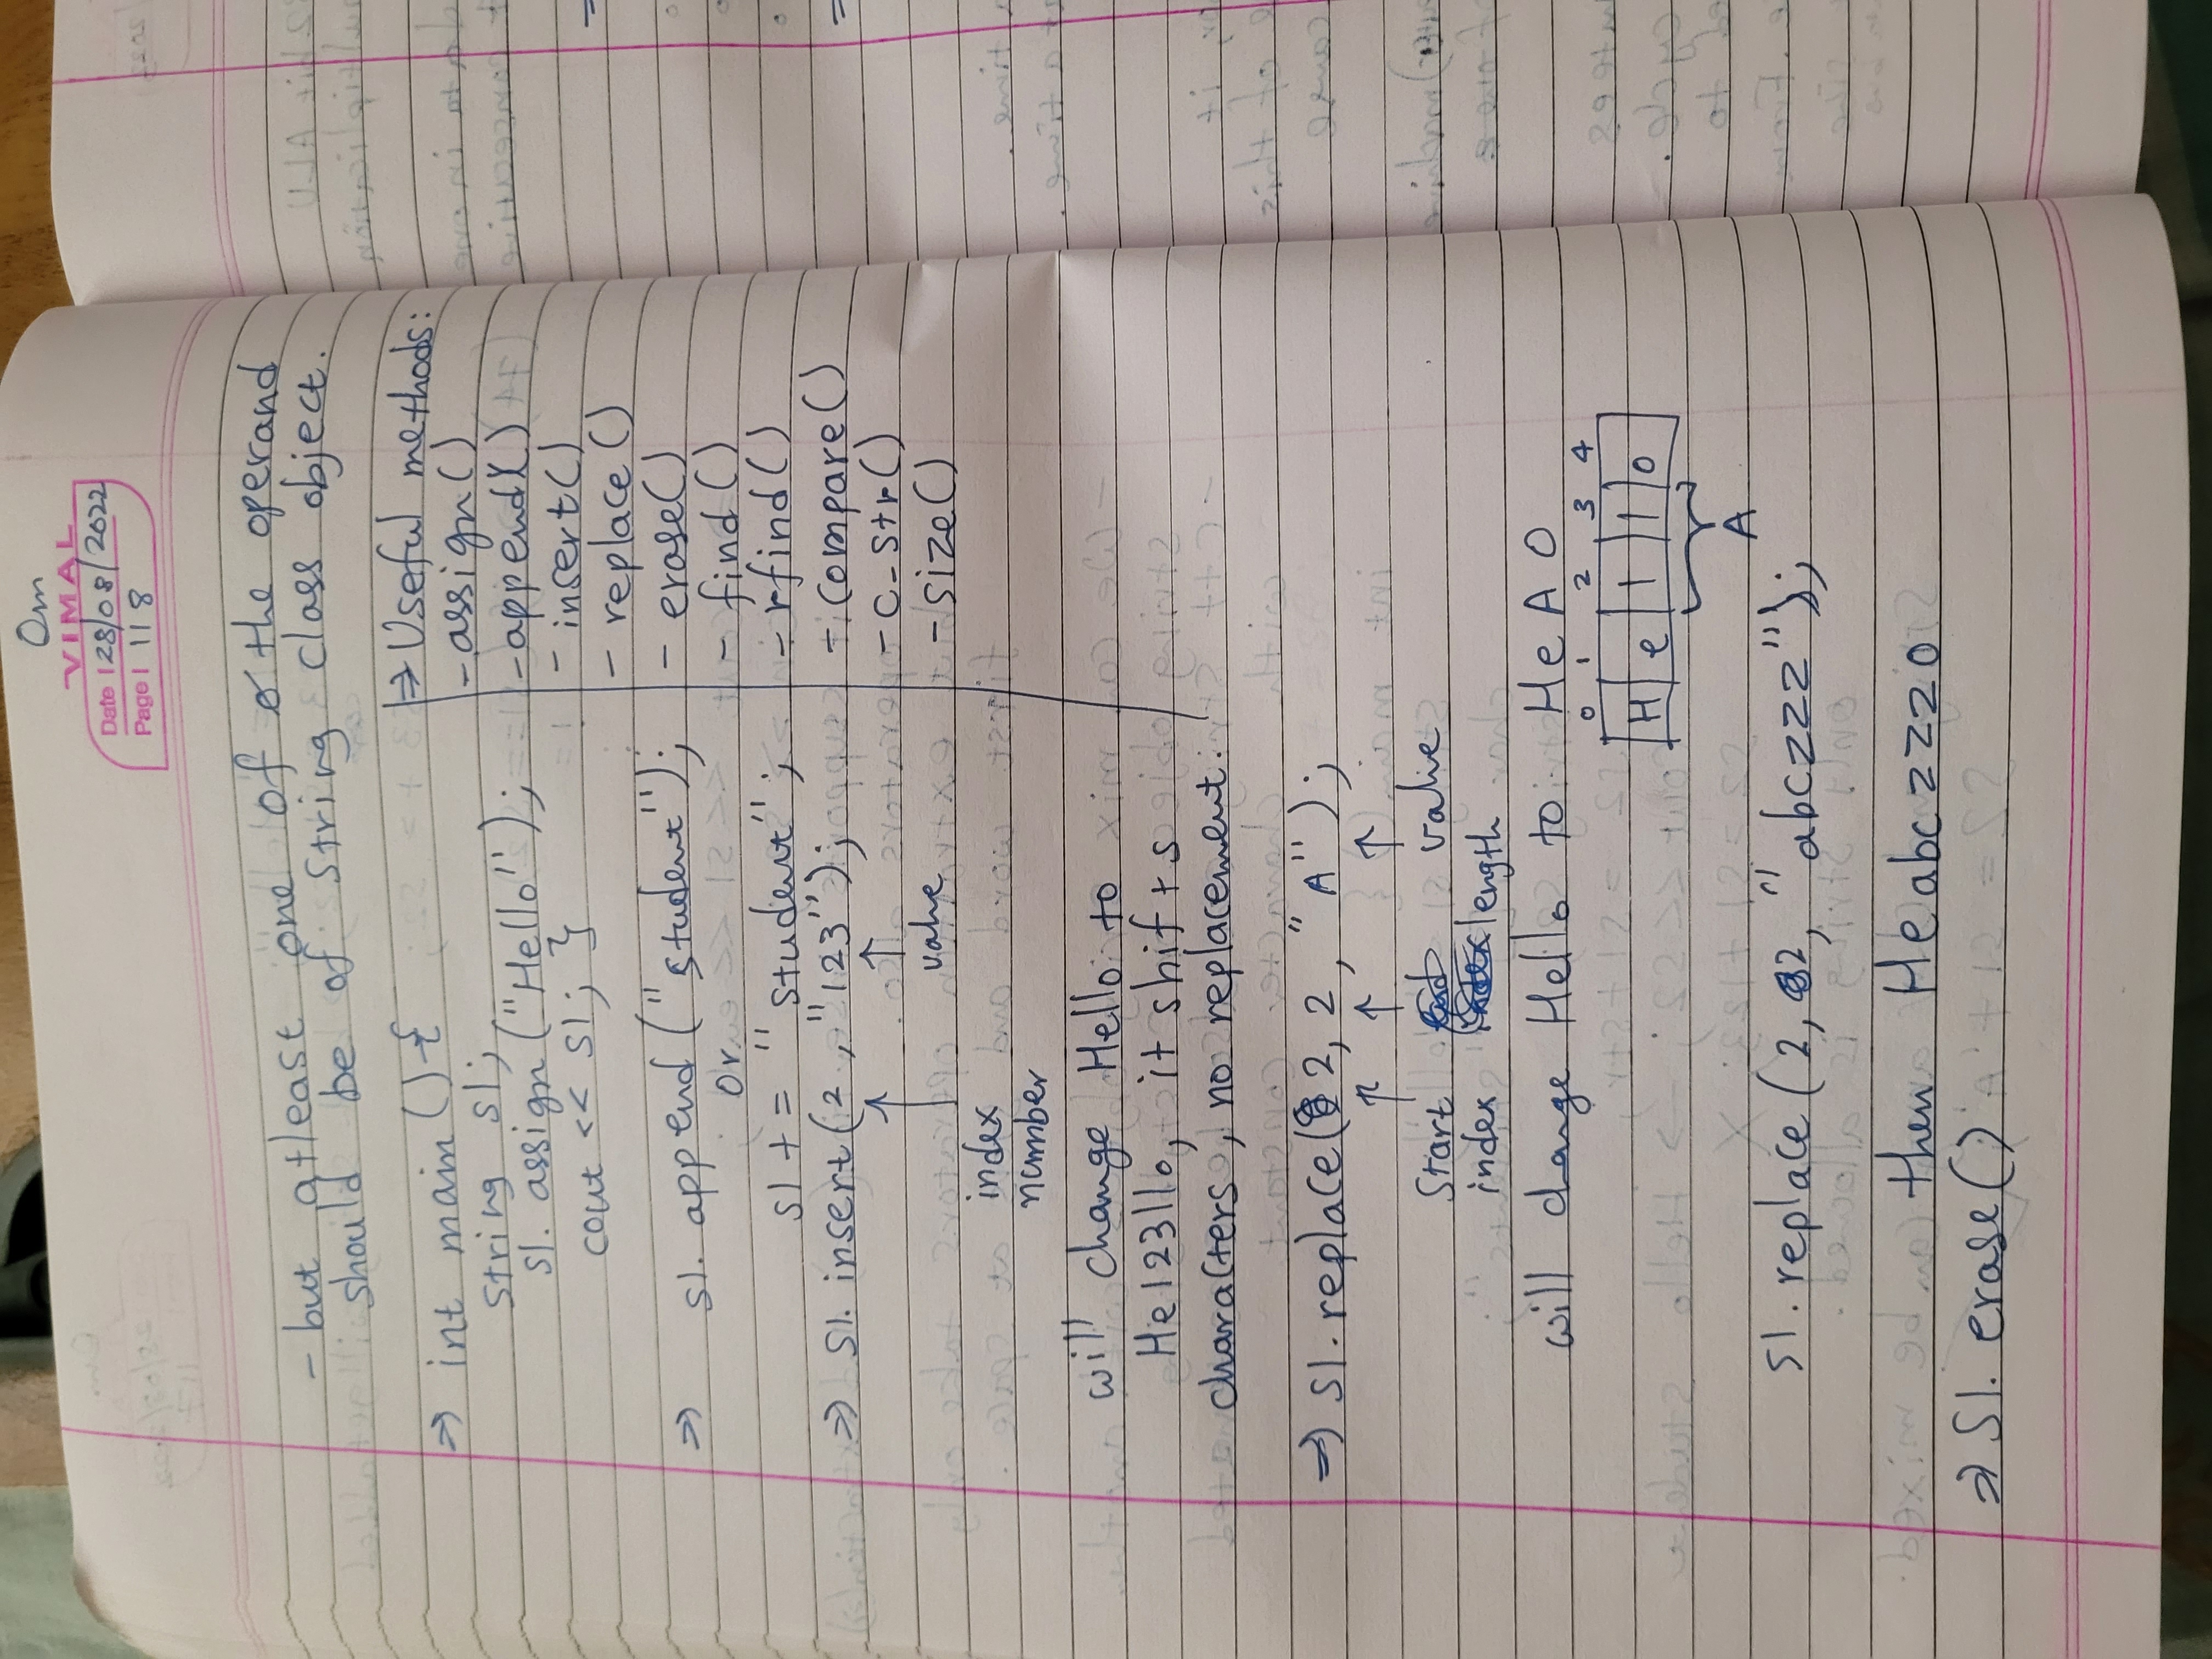 Om
VIMAL
Date | 28/08/2022
Page | 118
- but atleast one of the operand
should be of string class object.
⇒ int main () {
string s1;
s1. assign ("Hello");
cout << s1; }
⇒ s1. append ("student");
or
s1 += "student";
⇒ s1. insert (2, "123");
↑ ↑
value
index
number
will change Hello to
He123llo, it shifts
characters, no replacement.
⇒ Useful methods:
- assign()
- append()
- insert()
- replace()
- erase()
- find()
- rfind()
- compare()
- c_str()
- size()
⇒ s1. replace (2, 2, "A");
↑ ↑ ↑
Start value
index length
will change Hello to HeAO
0 1 2 3 4
H e l l o
A
s1. replace (2, 2, "abczzz");
then Heabczzzo
⇒ S1. erase()